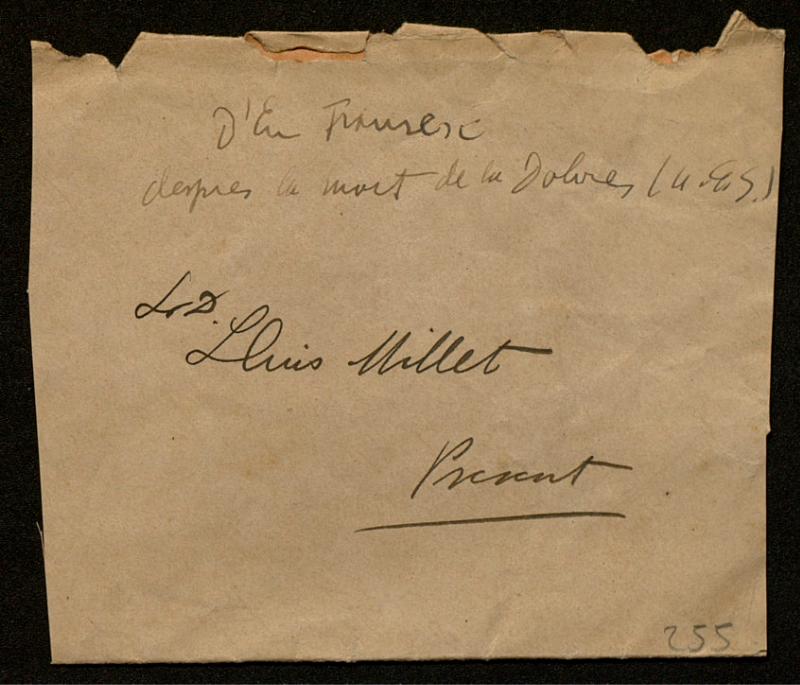 D'En Francesc
despres la mort de la Dolores (a.C.S.)
Sr. D.
Lluis Millet
Present
255